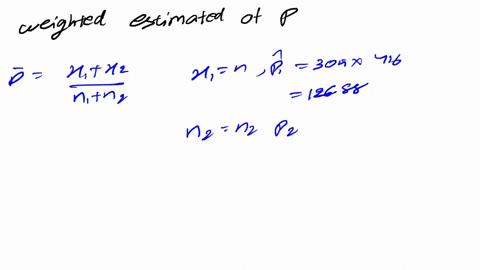 weighted estimated of P
p̄ = x₁+x₂ / n₁+n₂
x₁ = n, p̂₁ = 309 x 416
= 126 88
n₂ = n₂ P₂